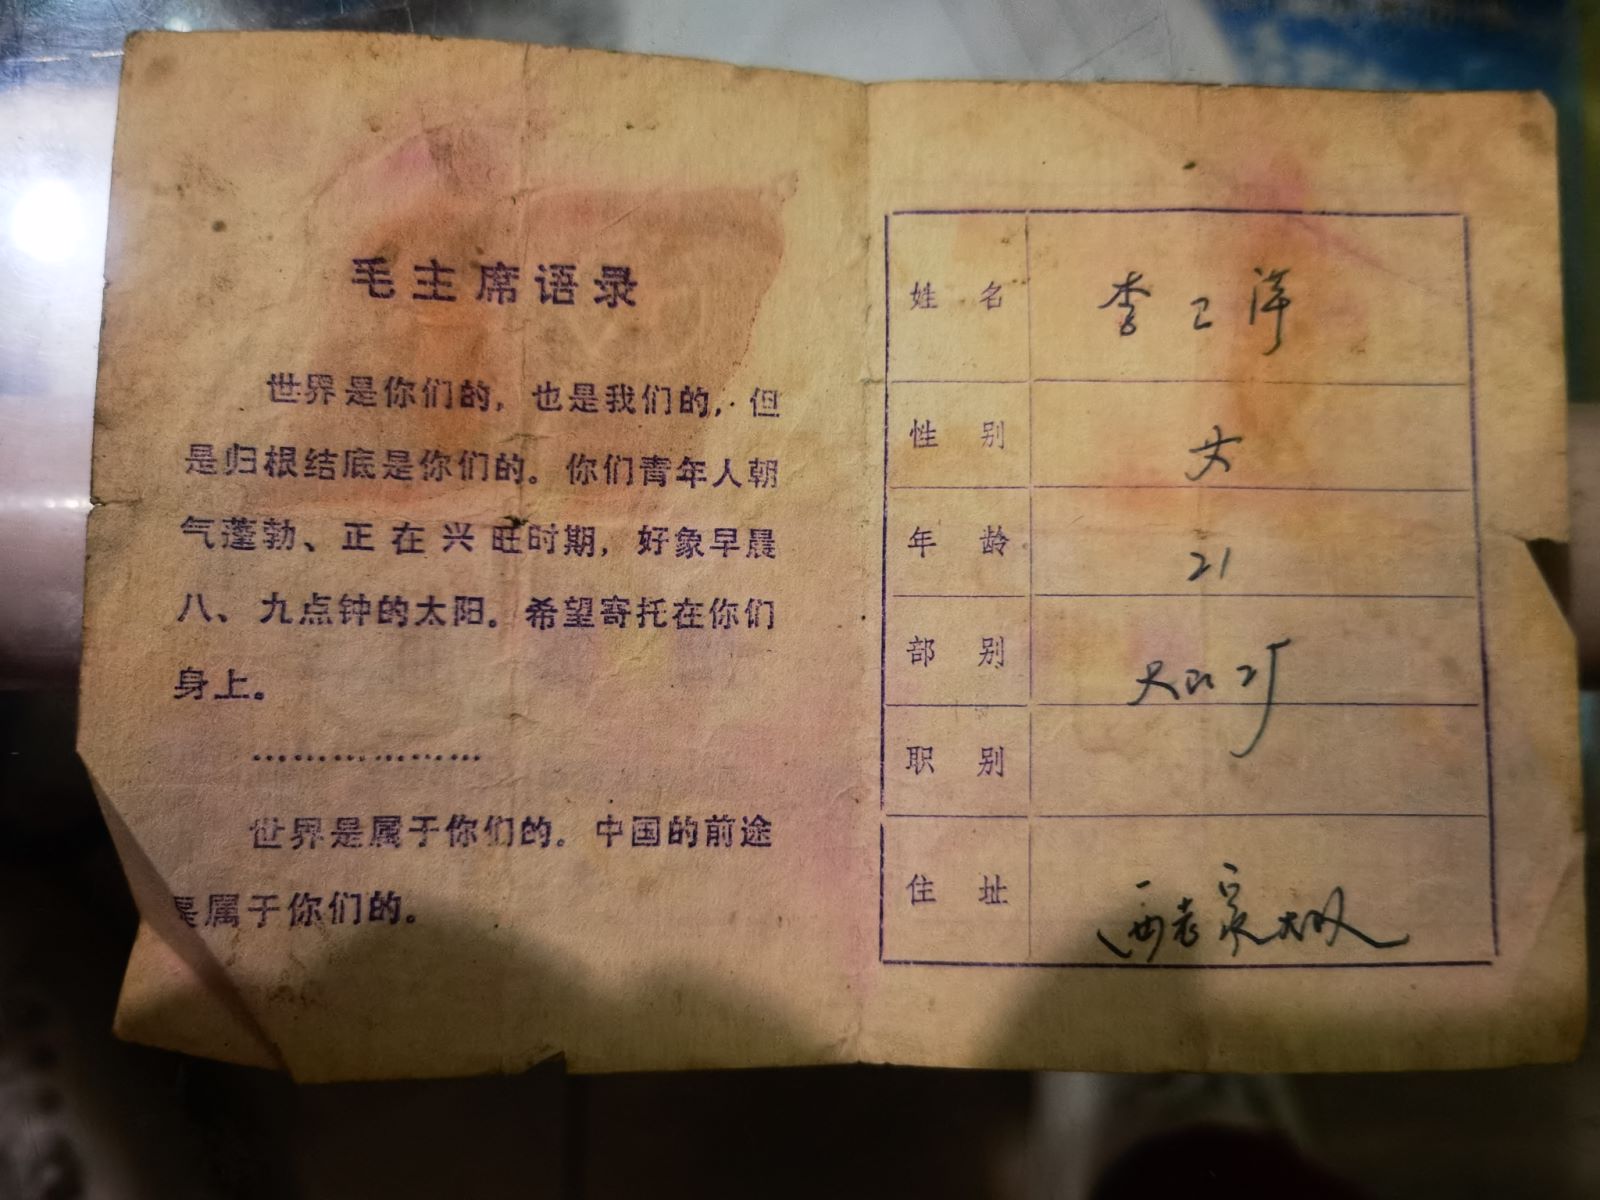 毛主席语录
世界是你们的，也是我们的，但
是归根结底是你们的。你们青年人朝
气蓬勃、正在兴旺时期，好象早晨
八、九点钟的太阳。希望寄托在你们
身上。
………………
世界是属于你们的。中国的前途
是属于你们的。
姓名 李卫萍
性别 女
年龄 21
部别
职别
住址 大队